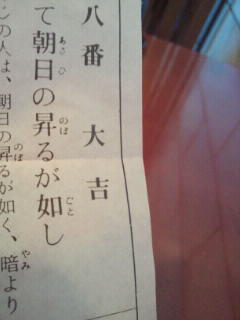 八番 大吉
て朝日の昇るが如し
じの人は、朝日の昇るが如く、暗より